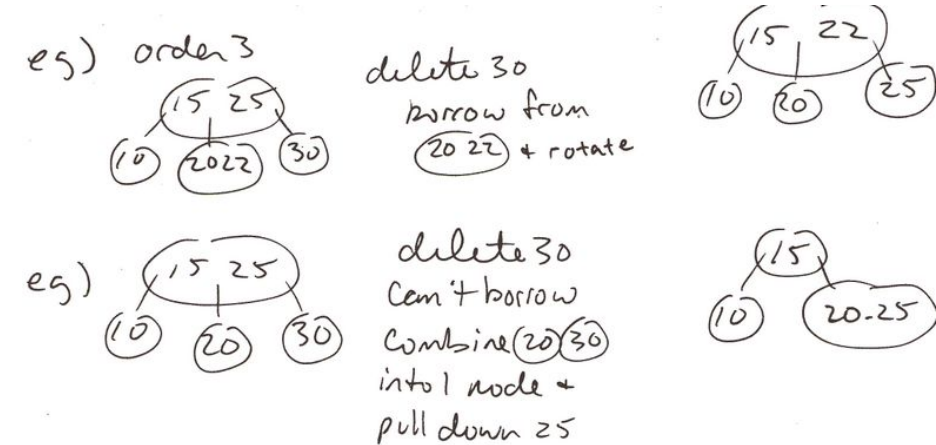 eg) order 3
15 25
10 20 22 30
delete 30
borrow from
20 22 & rotate
15 22
10 20 25
eg)
15 25
10 20 30
delete 30
Can't borrow
Combine 20 30
into 1 node &
pull down 25
15
10 20-25